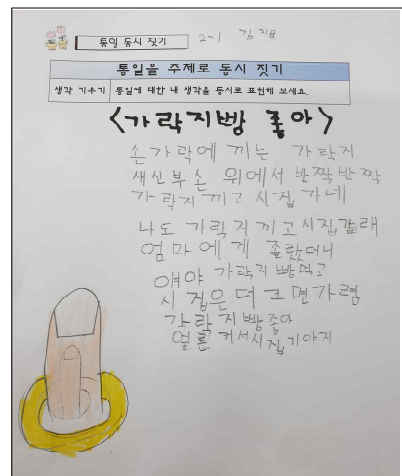 통일 동시 짓기
2-1 김지윤
통일을 주제로 동시 짓기
생각 키우기 통일에 대한 내 생각을 동시로 표현해 보세요.
<가락지빵 좋아>
손가락에 끼는 가락지
새신부 손 위에서 반짝반짝
가락지 끼고 시집 가네
나도 가락지 끼고 시집 갈래
엄마에게 졸랐더니
얘야 가락지빵 먹고
시집은 더 크면 가렴
가락지빵 좋아
얼른 커서 시집 가야지